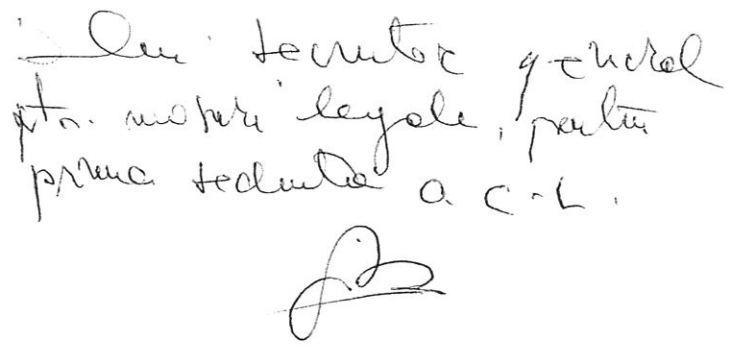 Dlui secretar general
ptr. măsuri legale, pentru
prima ședință a C.L.